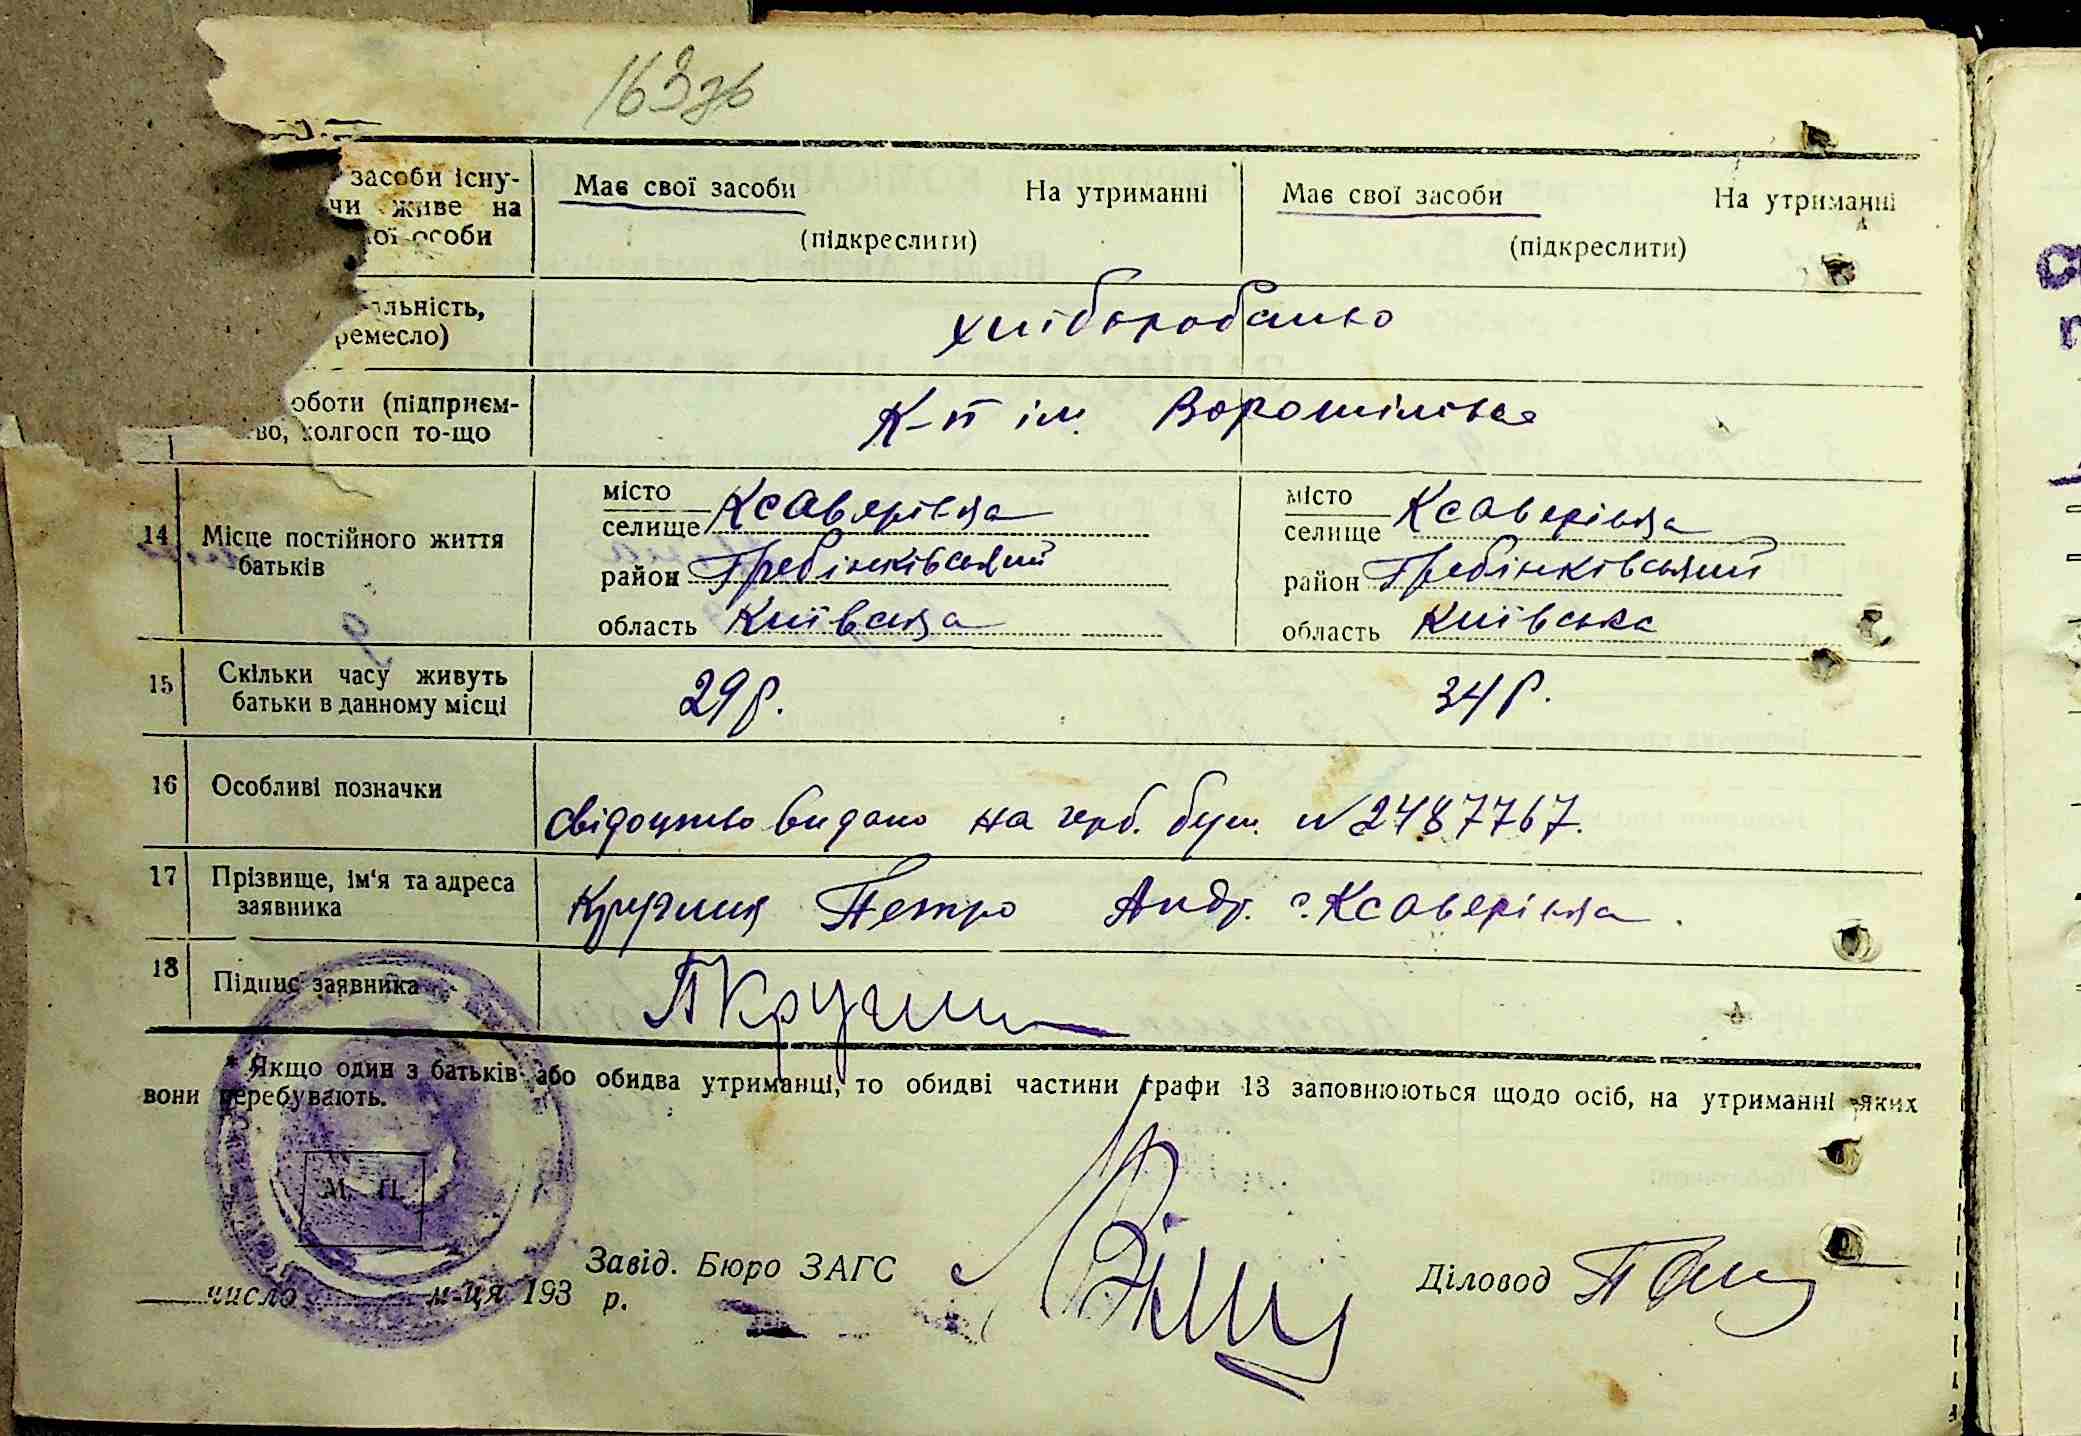 163зв
засоби існу-
чи живе на
ої особи
Має свої засоби На утриманні
(підкреслити)
Має свої засоби На утриманні
(підкреслити)
альність,
ремесло)
хліборобство
оботи (підприєм-
во, колгосп то-що
К-п ім. Ворошілова
14 Місце постійного життя
батьків
місто
селище Ксаверівка
район Гребінківський
область Київська
місто
селище Ксаверівка
район Гребінківський
область Київська
15 Скільки часу живуть
батьки в данному місці
29 р.
34 р.
16 Особливі позначки
свідоцтво видано на герб. бум. N 2487767.
17 Прізвище, ім'я та адреса
заявника
Кругляк Петро Андр. с. Ксаверівка.
18 Підпис заявника
* Якщо один з батьків або обидва утриманці, то обидві частини графи 13 заповнюються щодо осіб, на утриманні яких
вони перебувають.
М. П.
Завід. Бюро ЗАГС
Діловод
число м-ця 193 р.